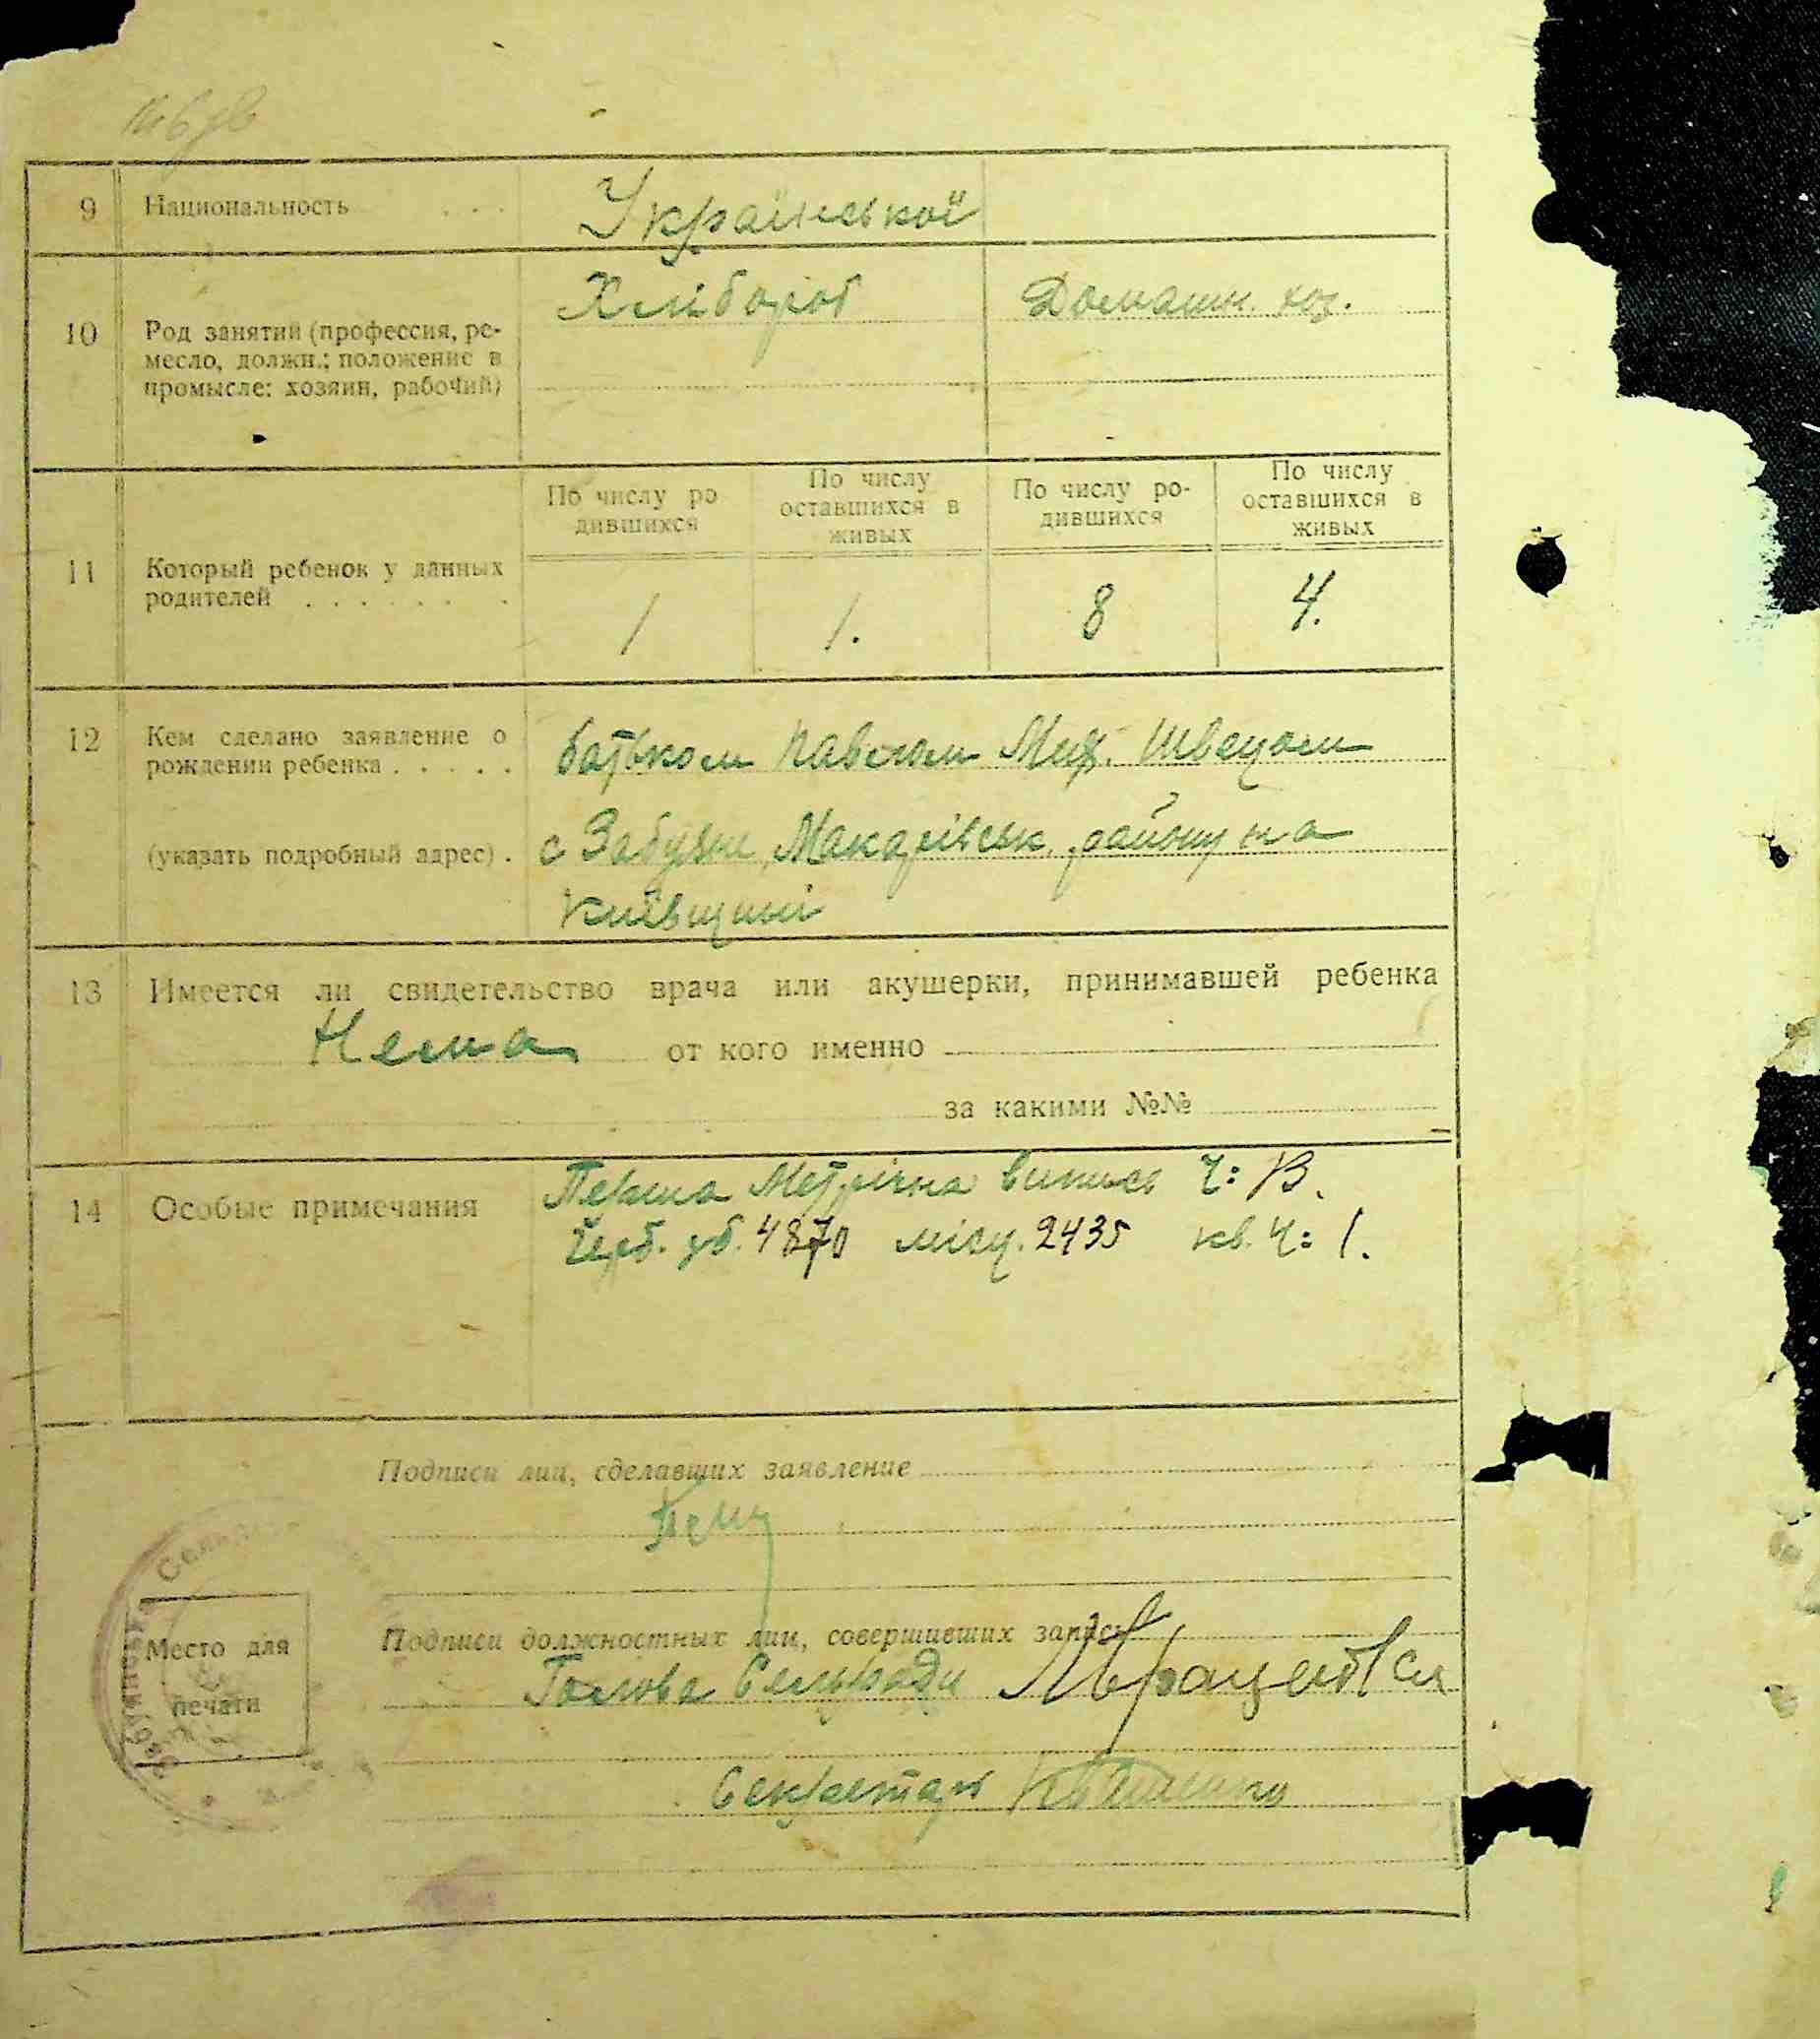 9 Национальность . . . Української
10 Род занятий (профессия, ре-
месло, должн.; положение в
промысле: хозяин, рабочий)
Хлібороб Домашн. хоз.
11 Который ребенок у данных
родителей . . . . . . .
По числу ро
дившихся
По числу
оставшихся в
живых
По числу ро-
дившихся
По числу
оставшихся в
живых
1 1. 8 4.
12 Кем сделано заявление о
рождении ребенка . . . . .
(указать подробный адрес) .
батьком Павлом Мих. Швецом
с Забуяне, Макарівськ. району на
Київщині
13 Имеется ли свидетельство врача или акушерки, принимавшей ребенка
Нема от кого именно
за какими №№
14 Особые примечания
Перша Метрична випись Ч: 13.
Герб. зб. 4870 місц. 2435 кв. Ч: 1.
Подписи лиц, сделавших заявление
Подписи должностных лиц, совершивших запись
Голова Сельради
Секретарь
Место для
печати